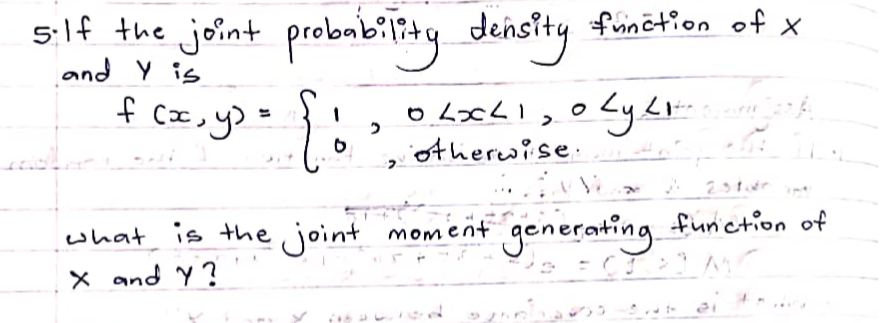 5. If the joint probability density function of X
and Y is
f(x,y) = { 1 , 0<x<1, 0<y<1
0 , otherwise.
what is the joint moment generating function of
X and Y?